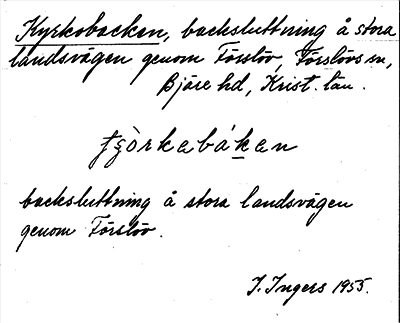 Kyrkobacken, backsluttning å stora
landsvägen genom Förslöv, Förslövs sn,
Bjäre hd, Krist. län.
tʃörkabákan
backsluttning å stora landsvägen
genom Förslöv.
I. Ingers 1955.